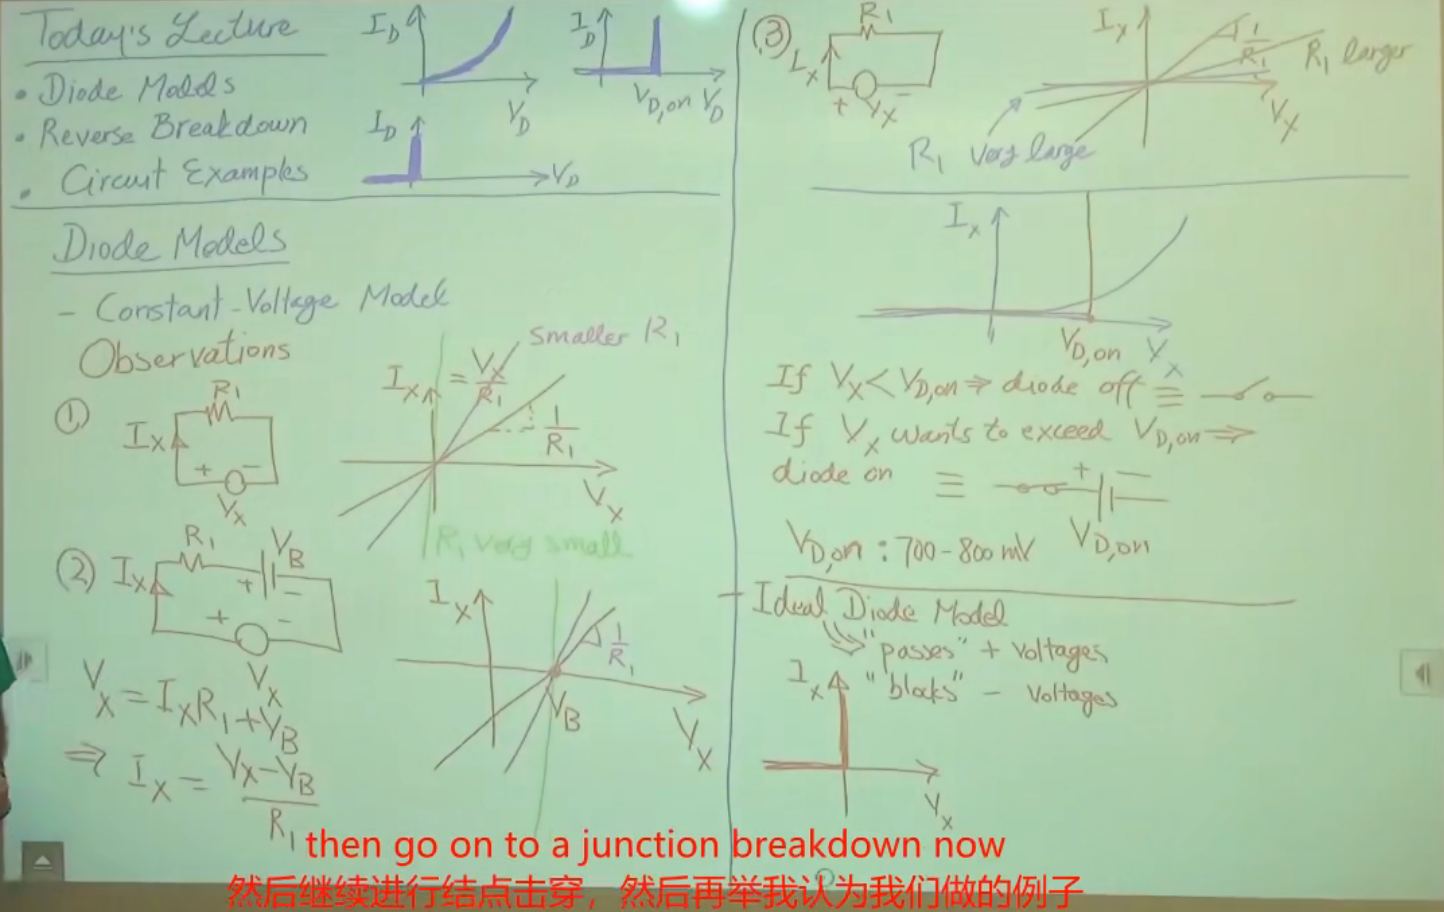 Today's Lecture
• Diode Models
• Reverse Breakdown
• Circuit Examples
I_D
V_D
I_D
V_D,on V_D
I_D
V_D
Diode Models
- Constant-Voltage Model
Observations
①
R_1
I_X
+ -
V_X
I_X = V_X / R_1
smaller R_1
1/R_1
V_X
R_1 very small
②
I_X
R_1
V_B
+ -
+ -
V_X
V_X = I_X R_1 + V_B
⇒ I_X = (V_X - V_B) / R_1
I_X
1/R_1
V_B
V_X
③
R_1
I_X
+ -
V_X
I_X
1/R_1
R_1 larger
V_X
R_1 very large
I_X
V_D,on V_X
If V_X < V_D,on ⇒ diode off ≡
If V_X wants to exceed V_D,on ⇒
diode on ≡
+ -
V_D,on : 700-800 mV
V_D,on
- Ideal Diode Model
"passes" + voltages
"blocks" - voltages
I_X
V_X
then go on to a junction breakdown now
然后继续进行结点击穿，然后再举我认为我们做的例子